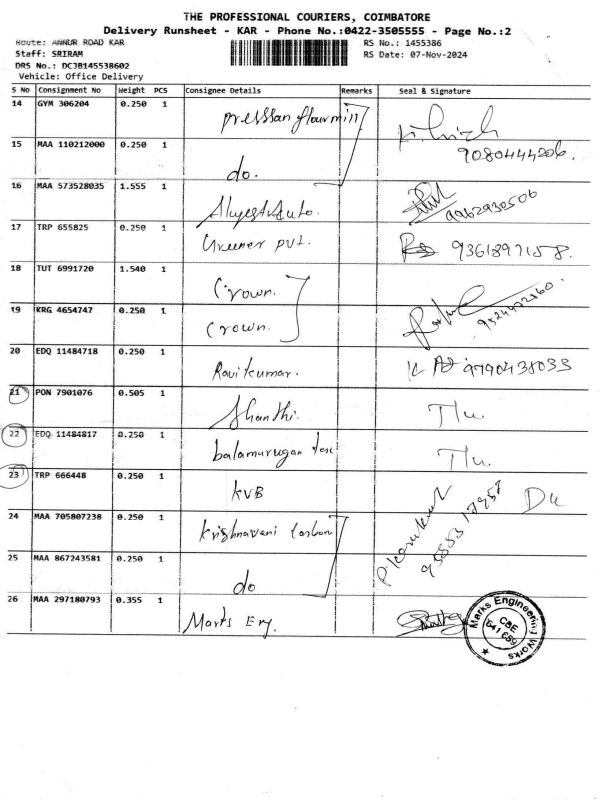 THE PROFESSIONAL COURIERS, COIMBATORE
Delivery Runsheet - KAR - Phone No.:0422-3505555 - Page No.:2
Route: ANNUR ROAD KAR RS No.: 1455386
Staff: SRIRAM RS Date: 07-Nov-2024
DRS No.: DCJB145538602
Vehicle: Office Delivery
S No Consignment No Weight PCS Consignee Details Remarks Seal & Signature
14 GYM 306204 0.250 1 flour mill
15 MAA 110212000 0.250 1 do. 9080444206.
16 MAA 573528035 1.555 1 Auto. 9962930506
17 TRP 655825 0.250 1 Greener pvt. 9361897158.
18 TUT 6991720 1.540 1 Crown.
19 KRG 4654747 0.250 1 Crown.
20 EDQ 11484718 0.250 1 Ravikumar. 9790438033
21 PON 7901076 0.505 1 Shanthi.
22 EDQ 11484817 0.250 1 balamurugan
23 TRP 666448 0.250 1 KVB
24 MAA 705807238 0.250 1 Krishnaveni Carbon
25 MAA 867243581 0.250 1 do
26 MAA 297180793 0.355 1 Marks Eng.
Marks Engineering Works
CBE
641 659